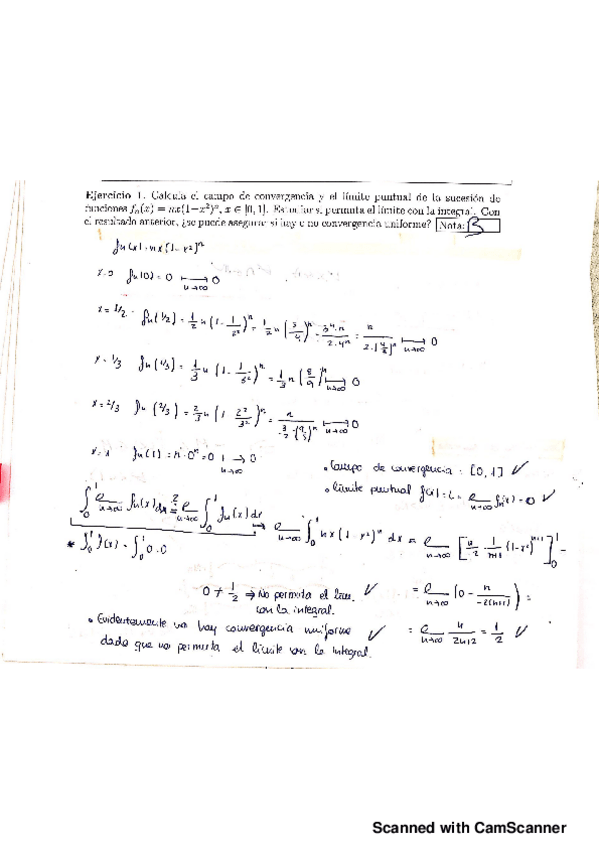 Ejercicio 1. Calcula el campo de convergencia y el límite puntual de la sucesión de
funciones fₙ(x) = nx(1−x²)ⁿ, x ∈ [0, 1]. Estudiar si permuta el límite con la integral. Con
el resultado anterior, ¿se puede asegurar si hay o no convergencia uniforme? Nota:
fn(x) = nx(1-x²)ⁿ
x=0 fn(0) = 0 ⟼ 0 n→∞
x = 1/2 fn(1/2) = 1/2 n (1 - 1/2²)ⁿ = 1/2 n (3/4)ⁿ = 3ⁿ·n / 2·4ⁿ = n / 2·(4/3)ⁿ ⟼ 0 n→∞
x = 1/3 fn(1/3) = 1/3 n (1 - 1/3²)ⁿ = 1/3 n (8/9)ⁿ ⟼ 0 n→∞
x = 2/3 fn(2/3) = 2/3 n (1 - 2²/3²)ⁿ = n / 3/2 (9/5)ⁿ ⟼ 0 n→∞
x = 1 fn(1) = n·0ⁿ = 0 ⟼ 0 n→∞
• Campo de convergencia: [0,1] ✓
• límite puntual f(x) = fn(x) = 0 ✓
∫₀¹ n→∞ fn(x) dx =? n→∞ ∫₀¹ fn(x) dx → n→∞ ∫₀¹ nx(1-x²)ⁿ dx = n→∞ [ 1/n+1 (1-x²)ⁿ⁺¹ ]₀¹ =
* ∫₀¹ f(x) = ∫₀¹ 0 = 0
0 ≠ 1/2 → No permuta el lím. ✓ = n→∞ (0 - n/-2(n+1)) =
con la integral.
• Evidentemente no hay convergencia uniforme ✓ = n→∞ n/2n+2 = 1/2 ✓
dado que no permuta el límite con la integral.
Scanned with CamScanner